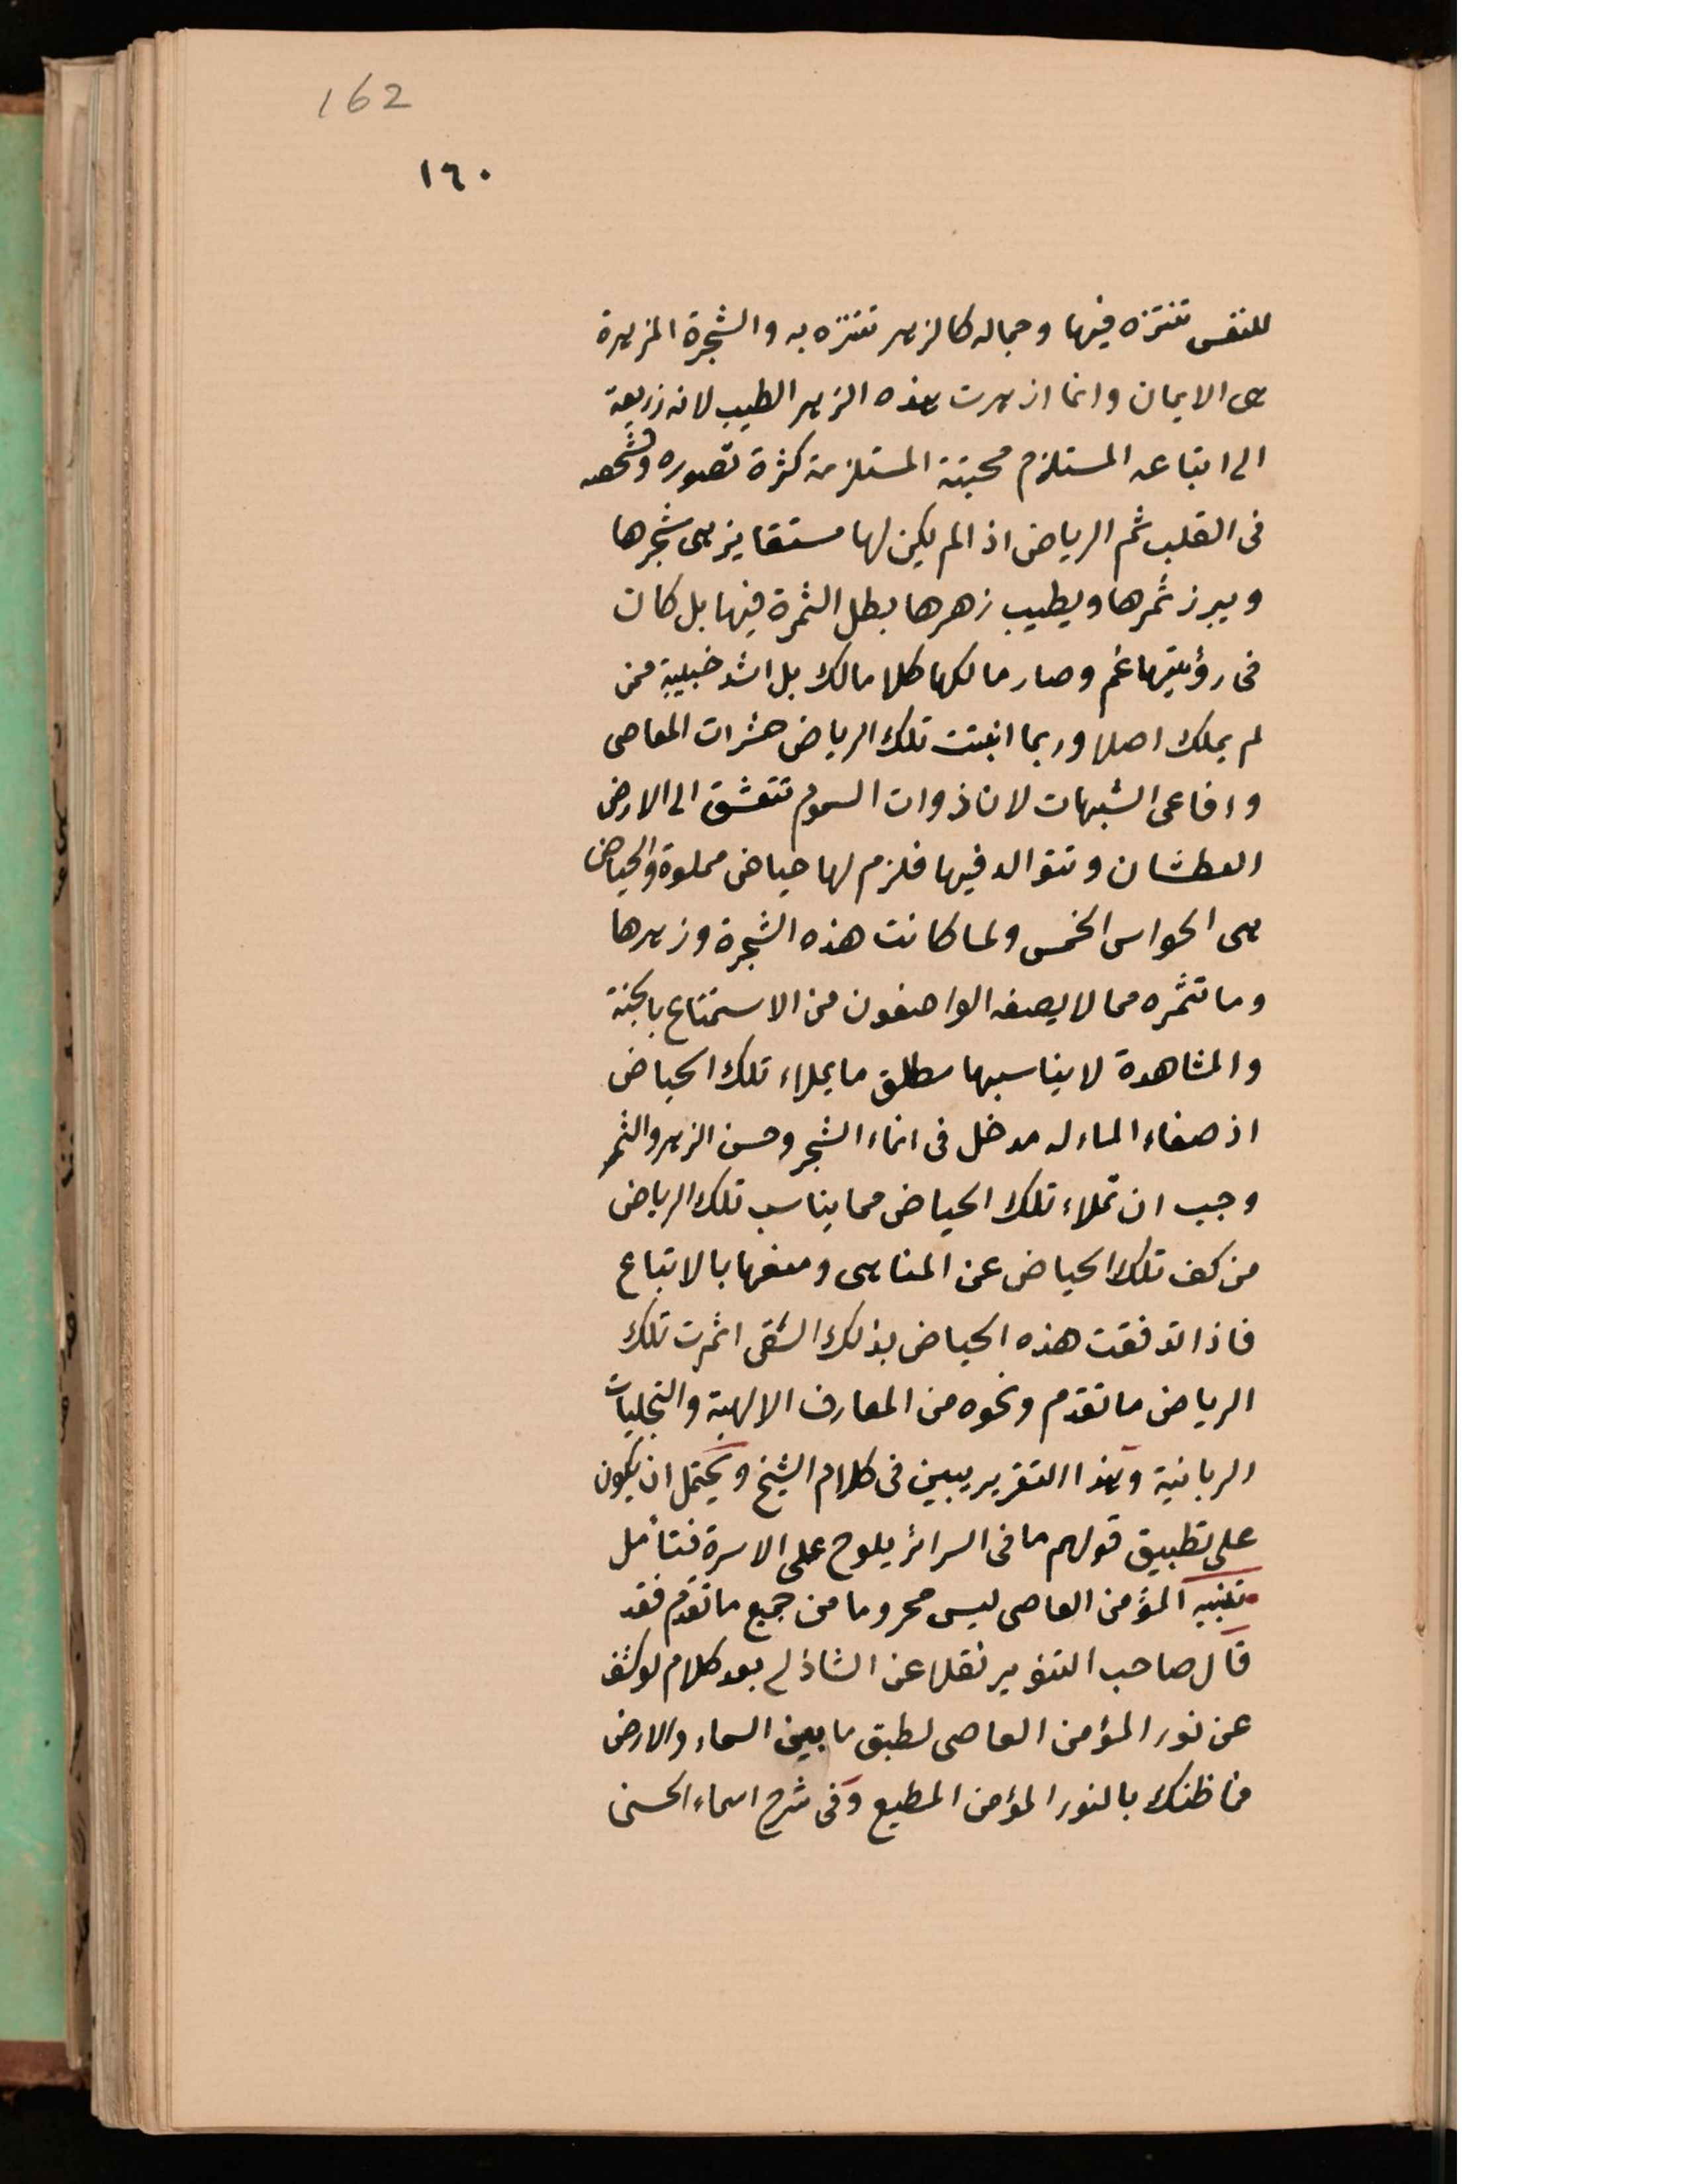 162
١٦٠
للنفس تتنزه فيها وجماله كالزهر تتنزه به والشجرة المزهرة
هى الايمان وانما ازهرت هذه الزهر الطيب لانه زريعة
الى اتباعه المستلزم محبته المستلزمة كثرة تصوره وتشخصه
فى القلب ثم الرياض اذا لم يكن لها مستقا يزهى شجرها
ويبرز ثمرها ويطيب زهرها بطل الثمرة فيها بل كان
فى رؤيتها غم وصار مالكها كلا مالك بل اشد خيبة ممن
لم يملك اصلا وربما انبتت تلك الرياض حشرات المعاصى
وافاعى الشبهات لان ذوات السموم تتعشق الى الارض
العطشان وتتوالد فيها فلزم لها حياض مملوة والحياض
هى الحواس الخمس ولما كانت هذه الشجرة وزهرها
وما تثمره مما لا يصفه الواصفون من الاستمتاع بالجنة
والمشاهدة لا يناسبها مطلق ما يملاء تلك الحياض
اذ صفاء الماء له مدخل فى انماء الشجر وحسن الزهر والثمر
وجب ان تملاء تلك الحياض مما يناسب تلك الرياض
من كف تلك الحياض عن المناهى ومنعها بالاتباع
فاذا تدفقت هذه الحياض بذلك السقى اثمرت تلك
الرياض ما تقدم ونحوه من المعارف الالهية والتجليات
الربانية وهذا التقرير يبين فى كلام الشيخ ويحتمل ان يكون
على تطبيق قولهم ما فى السرائر يلوح على الاسرة فتأمل
تنبيه المؤمن العاصى ليس محروما من جميع ما تقدم فقد
قال صاحب التنوير نقلا عن الشاذلى بعد كلام لو كشف
عن نور المؤمن العاصى لطبق ما بين السماء والارض
فما ظنك بالنور المؤمن المطيع وفى شرح اسماء الحسنى